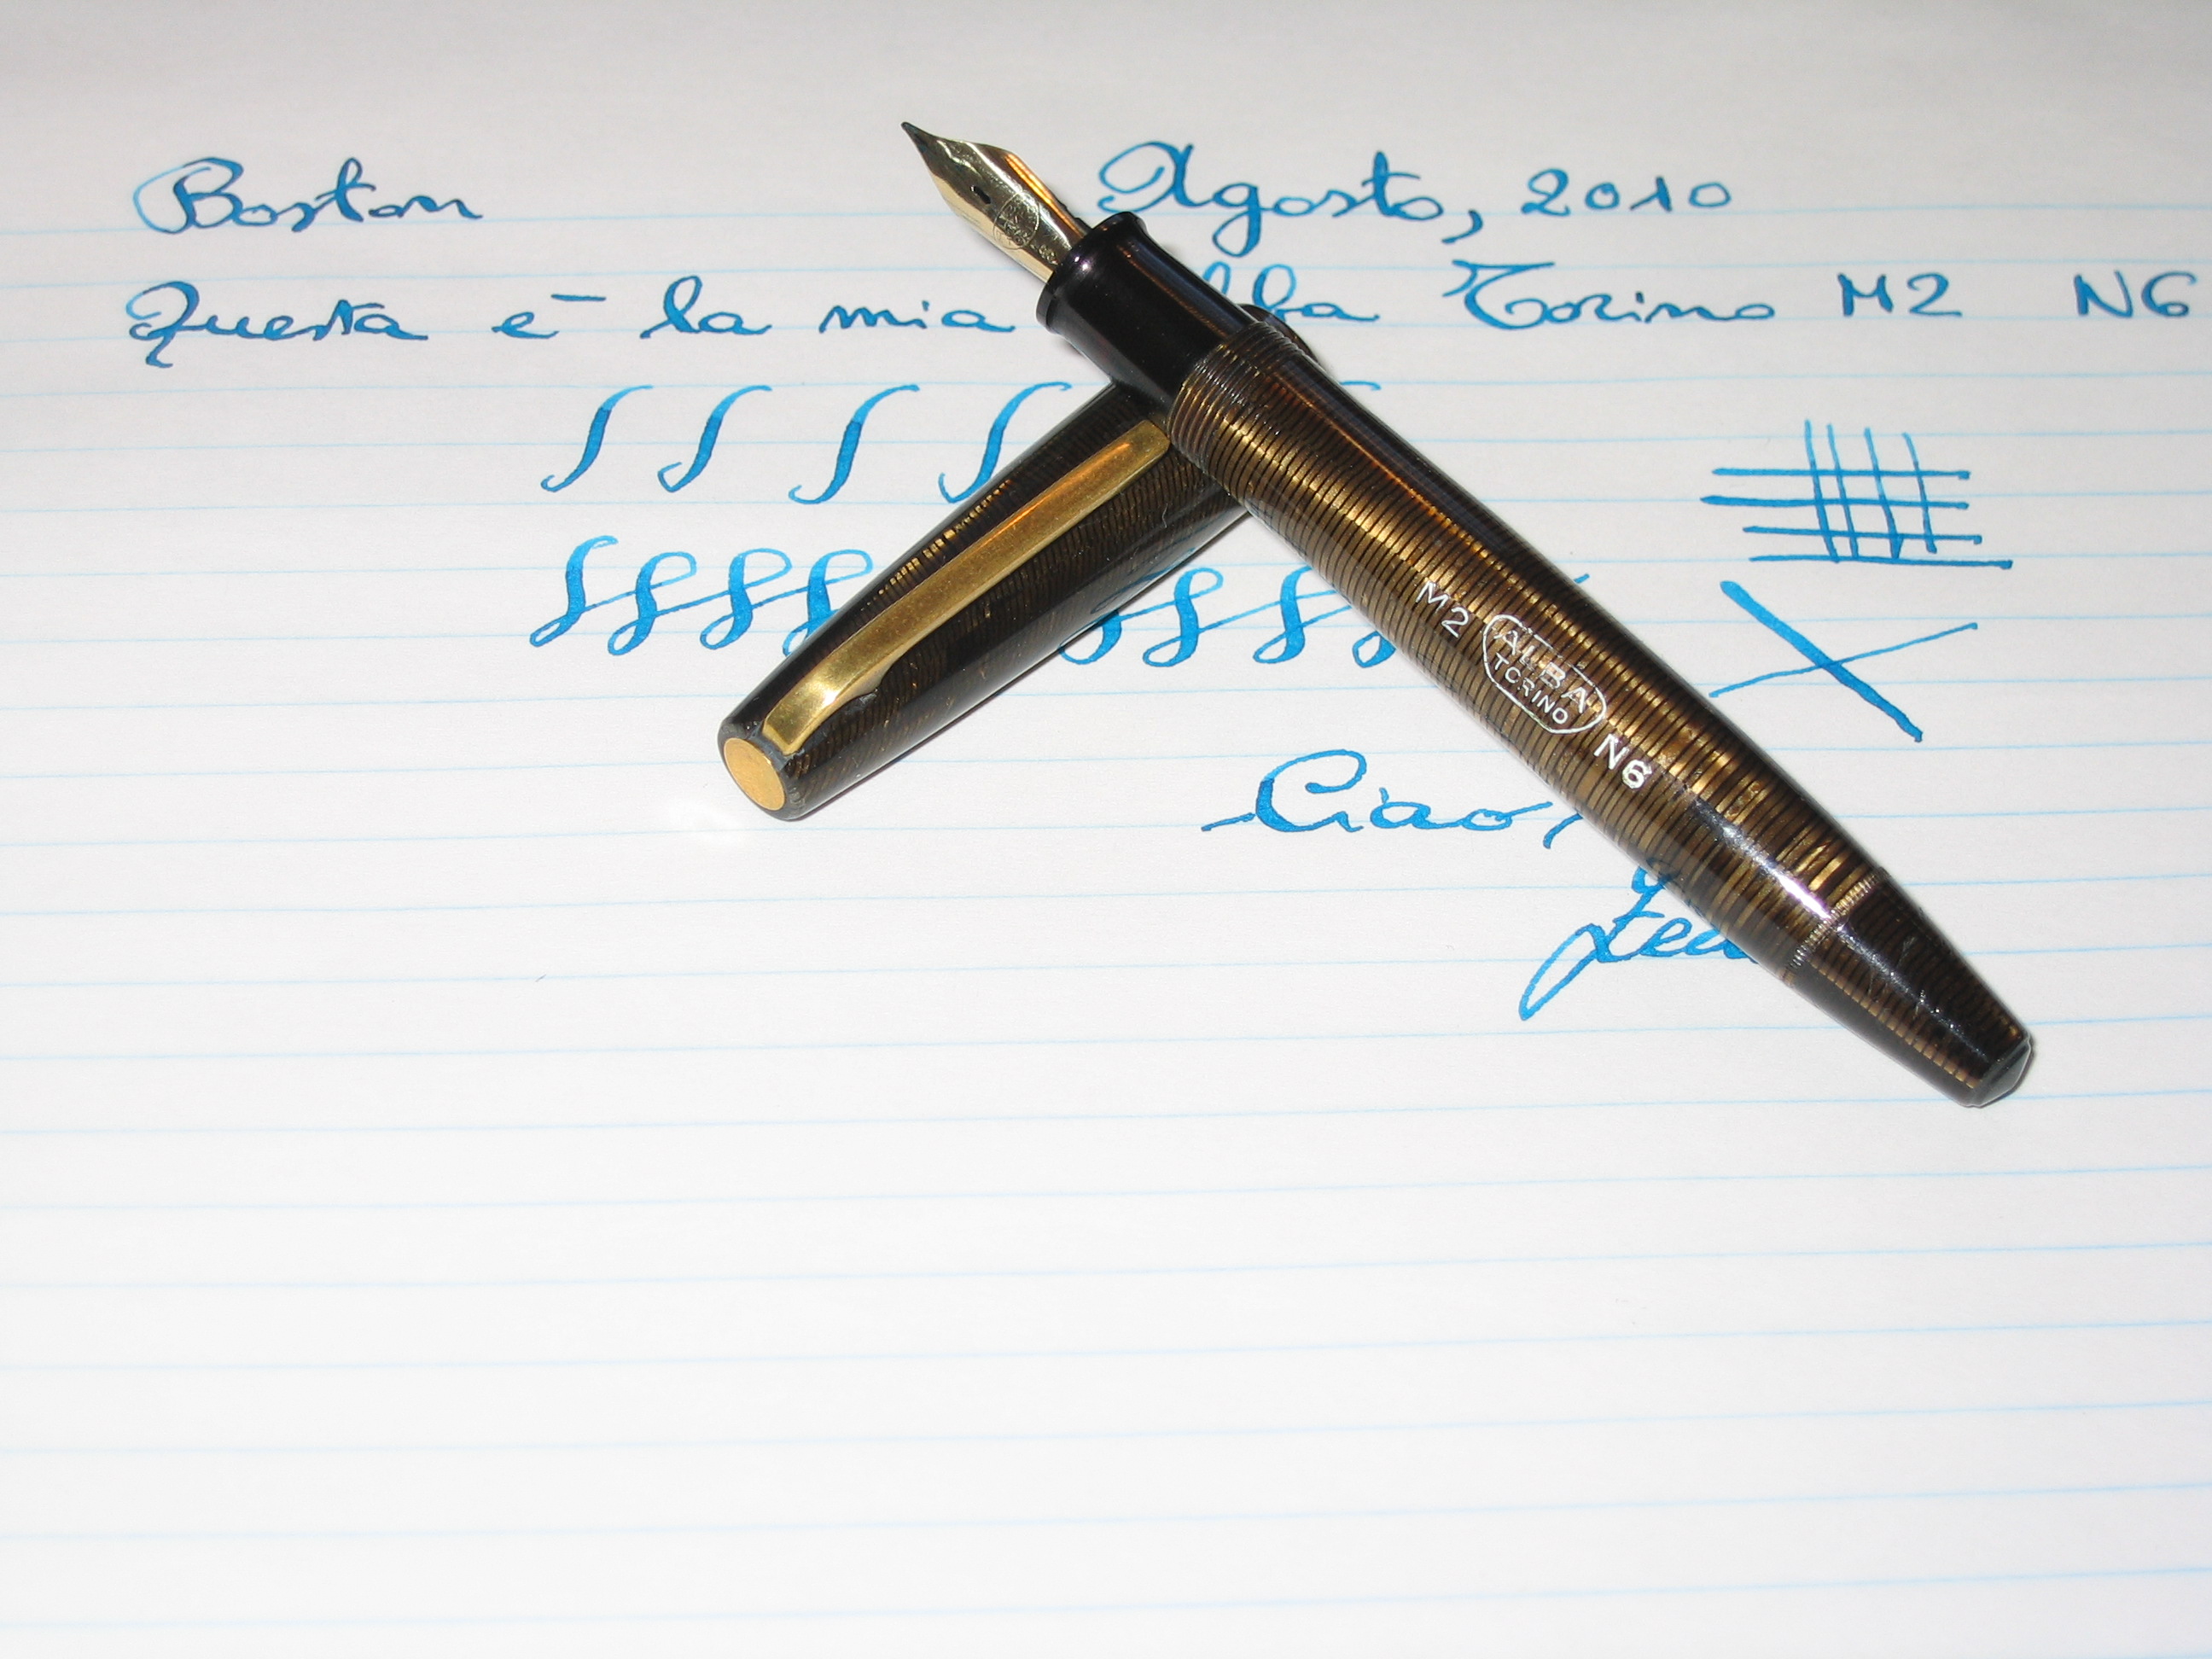 Boston Agosto, 2010
Questa è la mia Torino M2 N6
M2 ALBA TORINO N6
Ciao,